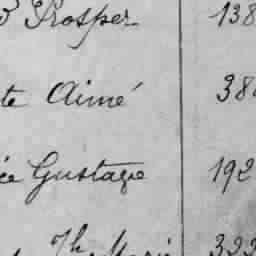 Prosper 138
te Aimé 38
ée Gustave 192
Th Marie 323